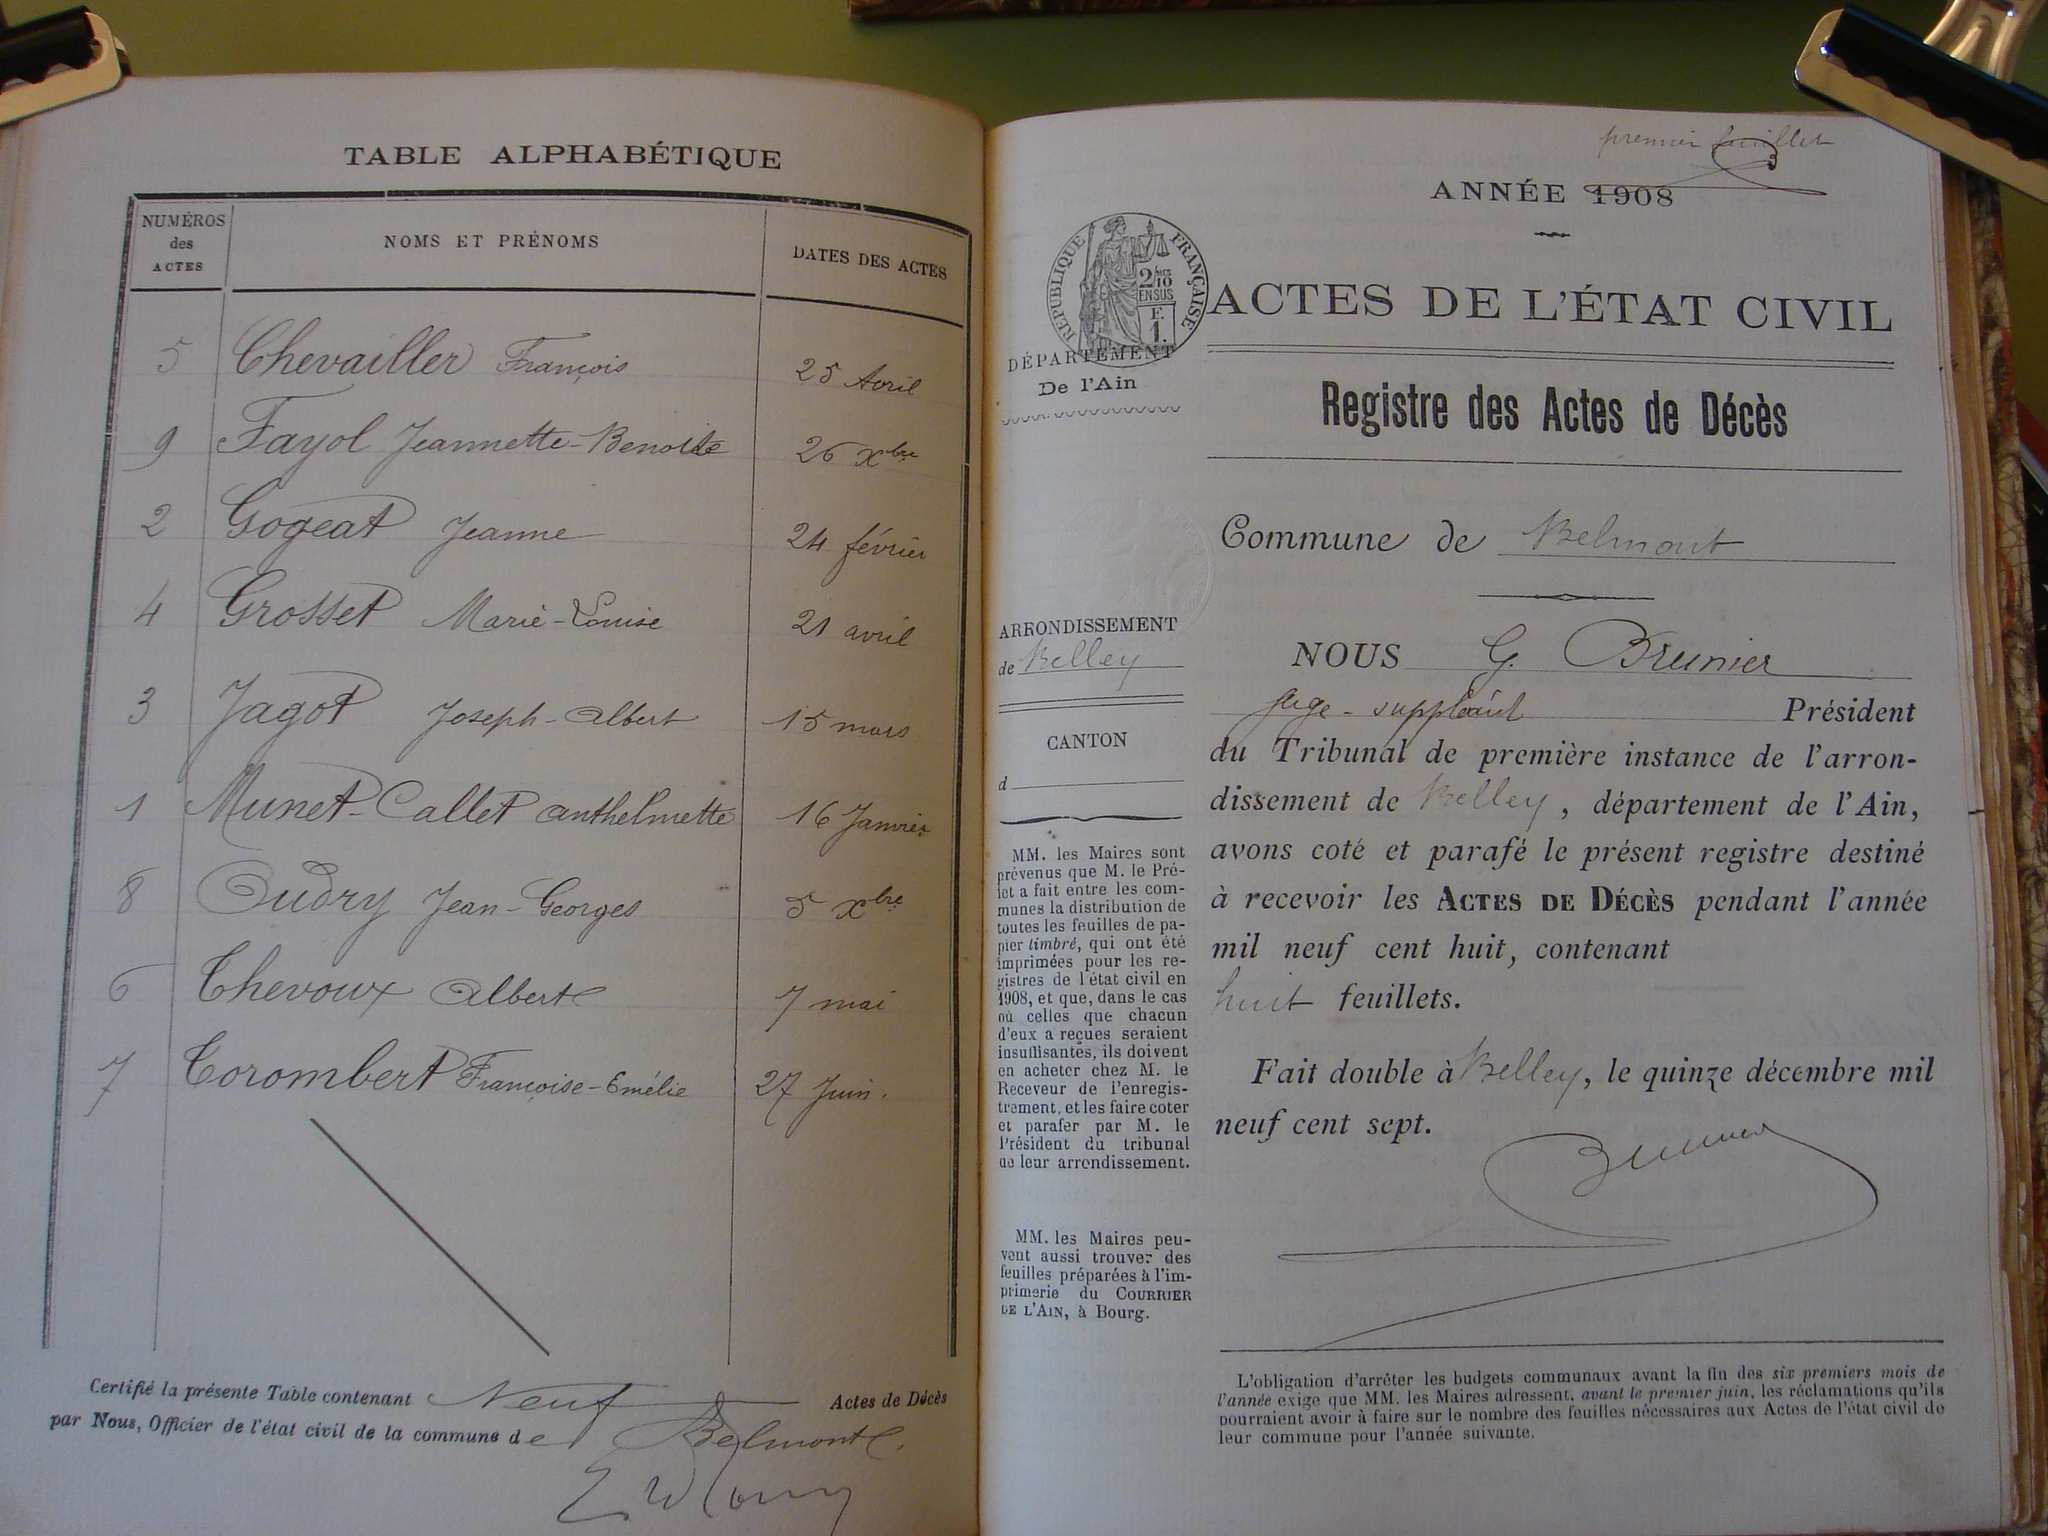 TABLE ALPHABÉTIQUE
NUMÉROS des ACTES
NOMS ET PRÉNOMS
DATES DES ACTES
5 Chevailler François 25 Avril
9 Fayol Jeannette-Benoite 26 Xbre
2 Gogeat Jeanne 24 février
4 Grosset Marie-Louise 21 avril
3 Jagot Joseph-Albert 15 mars
1 Munet-Callet Anthelmette 16 Janvier
8 Oudry Jean-Georges 5 Xbre
6 Thevoux Albert 7 mai
7 Torombert Françoise-Emélie 27 Juin.
Certifié la présente Table contenant Neuf Actes de Décès
par Nous, Officier de l'état civil de la commune de Belmont.
premier feuillet
ANNÉE 1908
RÉPUBLIQUE FRANÇAISE
2/10
EN SUS
F.
1.
DÉPARTEMENT
De l'Ain
ACTES DE L'ÉTAT CIVIL
Registre des Actes de Décès
Commune de Belmont
ARRONDISSEMENT
de Belley
CANTON
d
MM. les Maires sont
prévenus que M. le Pré-
fet a fait entre les com-
munes la distribution de
toutes les feuilles de pa-
pier timbré, qui ont été
imprimées pour les re-
gistres de l'état civil en
1908, et que, dans le cas
où celles que chacun
d'eux a reçues seraient
insuffisantes, ils doivent
en acheter chez M. le
Receveur de l'enregis-
trement, et les faire coter
et parafer par M. le
Président du tribunal
de leur arrondissement.
MM. les Maires peu-
vent aussi trouver des
feuilles préparées à l'im-
primerie du COURRIER
DE L'AIN, à Bourg.
NOUS G. Brunier
juge-suppléant Président
du Tribunal de première instance de l'arron-
dissement de Belley, département de l'Ain,
avons coté et parafé le présent registre destiné
à recevoir les ACTES DE DÉCÈS pendant l'année
mil neuf cent huit, contenant
huit feuillets.
Fait double à Belley, le quinze décembre mil
neuf cent sept.
Brunier
L'obligation d'arrêter les budgets communaux avant la fin des six premiers mois de
l'année exige que MM. les Maires adressent, avant le premier juin, les réclamations qu'ils
pourraient avoir à faire sur le nombre des feuilles nécessaires aux Actes de l'état civil de
leur commune pour l'année suivante.